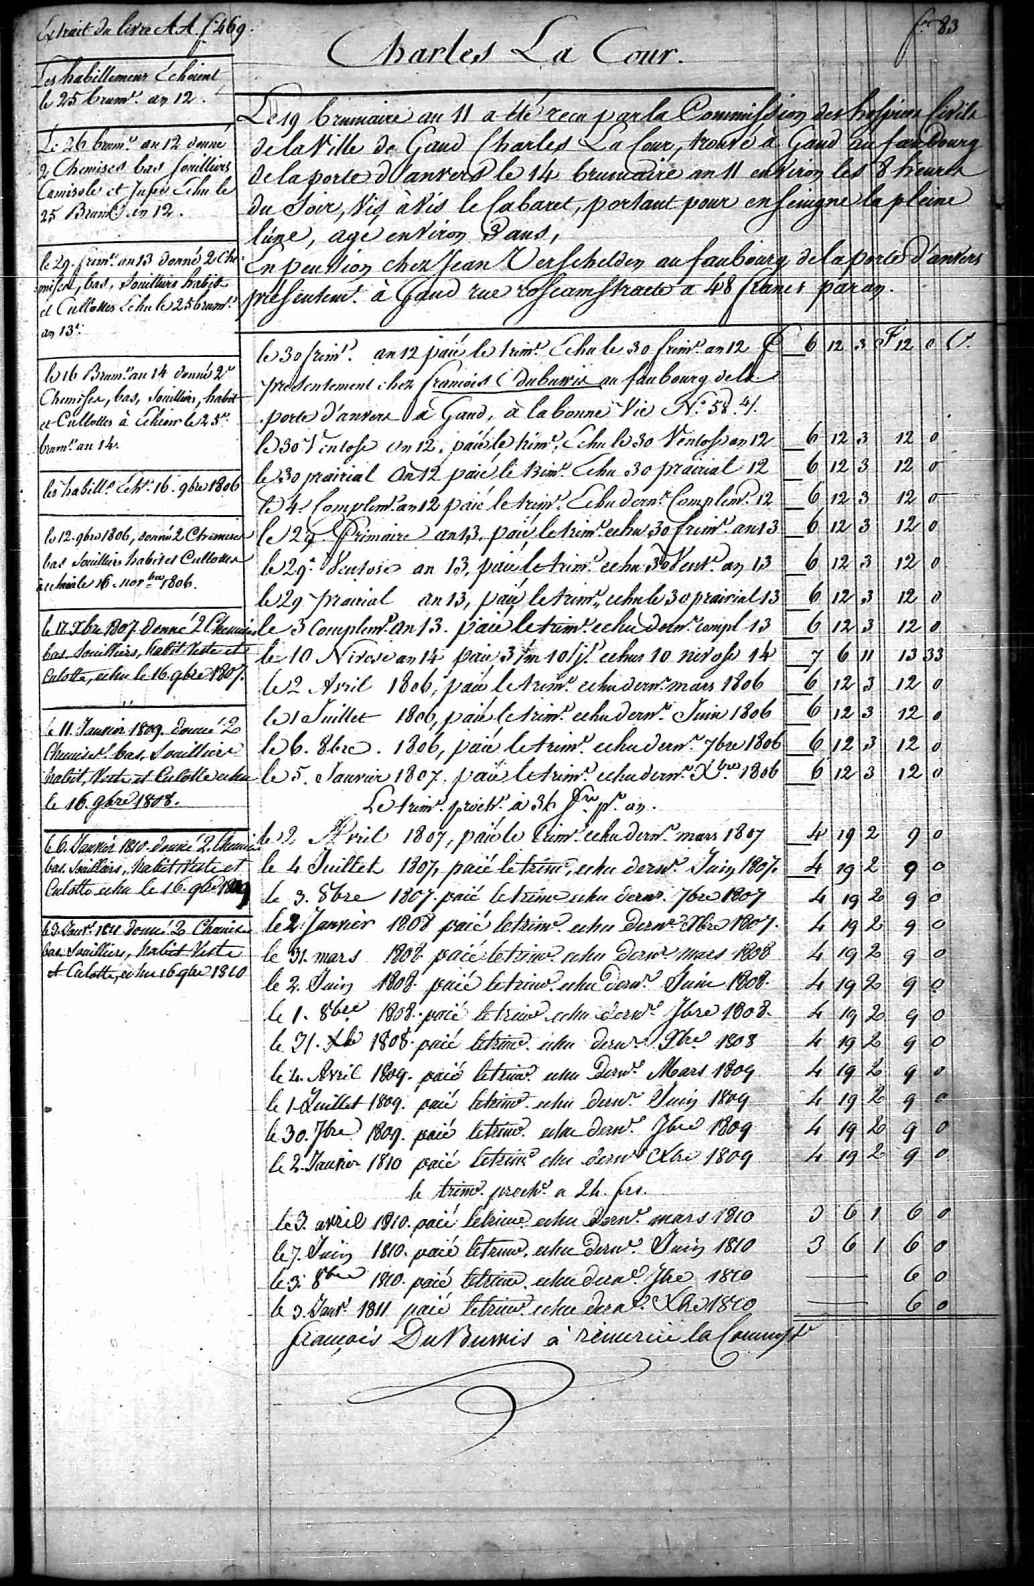 Extrait du livre AA f. 469.
fo. 83
Charles La Cour.
Les habillemens Echoient
le 25 brum.e an 12.
Le 26 brum.e an 12 donné
2 Chemises bas souilliers
Camisole et Jupes Echu le
25 Brum.e an 12.
le 29. frim.e an 13 donné 2 Che
mises, bas, souilliers habit
et Cullottes Echu le 25 brum.e
an 13.
le 16 Brum.e an 14 donné 2
Chemises, bas, souilliers, habit
et Cullottes à Echeoir le 25.
brum.e an 14.
les habill.s Ech.s 16. 9bre 1806
le 12 9bre 1806, donné 2 Chemises
bas souilliers habit et Cullottes
le 16 nov.bre 1806.
le 17 Xbre 1807 donné 2 Chemises
bas souilliers, habit veste et
culotte, echu le 16 9bre 1807.
le 11. Janvier 1809. donné 2
Chemises. bas. Souilliers
habit, Veste et Culotte echu
le 16. 9bre 1808.
le 6. Janvier 1810 donné 2. Chemises
bas. souilliers, habit veste et
Culotte echu le 16. 9bre 1809
le 3. Janv.r 1811 donné 2 Chemises
bas souilliers, habit veste
et Culotte, echu 16 9bre 1810
Le 19 brumaire an 11 a été recu par la Commission des hospices Civils
de la Ville de Gand Charles La Cour, trouvé à Gand au faubourg
de la porte d'anvers le 14 brumaire an 11 environ les 8 heures
du Soir, Vis à vis le Cabaret, portant pour enseigne la pleine
lune, age environ 3 ans,
En pension chez Jean Verschelden au faubourg de la porte d'anvers
présentem.t à Gand rue roscamstraete a 48 francs par an.
le 30 frim.e an 12 paié le trim.e Echu le 30 frim.e an 12 £ 6 12 3 F 12 0 C.
presentement chez francois Dubuvis au faubourg de la
porte d'anvers à Gand, à la bonne Vie N.o 58. 4.
le 30 Ventose an 12, paié le trim.e Echu le 30 Ventose an 12 6 12 3 12 0
le 30 prairial an 12 paié le trim.e Echu 30 prairial 12 6 12 3 12 0
le 4 Complem.e an 12 paié le trim.e Echu dern.r Complem.e 12 6 12 3 12 0
le 29. Frimaire an 13, paié le trim.e echu 30 frim.e an 13 6 12 3 12 0
le 29. Ventose an 13, paié le trim.e echu 30 Vent.e an 13 6 12 3 12 0
le 29 prairial an 13, paié le trim.e, echu le 30 prairial 13 6 12 3 12 0
le 3 Complem.e an 13. paié le trim.e echu dern.r compl 13 6 12 3 12 0
le 10 Nivose an 14 paié 3 m 10 j. echus 10 nivose 14 7 6 11 13 33
le 2 Avril 1806, paié le trim.e echu dern.r mars 1806 6 12 3 12 0
le 1 Juillet 1806, paié le trim.e echu dern.r Juin 1806 6 12 3 12 0
le 6. 8bre. 1806, paié le trim.e echu dern.r 7bre 1806 6 12 3 12 0
le 5. Janvier 1807. paié le trim.e echu dern.r Xbre 1806 6 12 3 12 0
Le trim.e proch.n à 36 f.s p.r an.
le 2 Avril 1807, paié le trim.e echu dern.r mars 1807 4 19 2 9 0
le 4 Juillet 1807, paié le trim.e, echu dern.r Juin 1807. 4 19 2 9 0
le 3. 8bre 1807. paié le trim.e echu dern.r 7bre 1807 4 19 2 9 0
le 2 Janvier 1808 paié le trim.e echu dern.r Xbre 1807. 4 19 2 9 0
le 31. mars 1808. paié le trim.e echu dern.r mars 1808 4 19 2 9 0
le 2. Juin 1808. paié le trim.e echu dern.r Juin 1808. 4 19 2 9 0
le 1. 8bre 1808. paié le trim.e echu dern.r 7bre 1808. 4 19 2 9 0
le 31. Xbre 1808. paié le trim.e echu dern.r Xbre 1808 4 19 2 9 0
le 4. Avril 1809. paié le trim.e echu dern.r Mars 1809 4 19 2 9 0
le 1 Juillet 1809. paié le trim.e echu dern.r Juin 1809 4 19 2 9 0
le 30. 7bre 1809. paié le trim.e echu dern.r 7bre 1809 4 19 2 9 0
le 2 Janvier 1810 paié le trim.e echu dern.r Xbre 1809 4 19 2 9 0
le trim.e proch.n a 24. frs.
le 3. avril 1810. paié le trim.e echu dern.r mars 1810 3 6 1 6 0
le 7. Juin 1810. paié le trim.e echu dern.r Juin 1810 3 6 1 6 0
le 3. 8bre 1810. paié le trim.e echu dern.r 7bre 1810 6 0
le 3. Janv.r 1811 paié le trim.e echu dern.r Xbre 1810 6 0
françois DuBuvis à remercié la Commiss.e